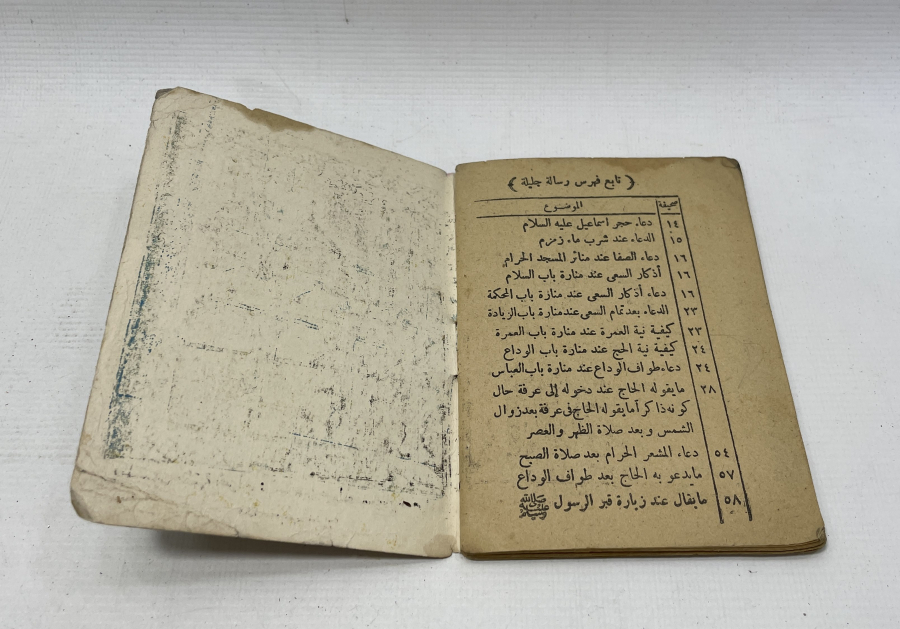 ﴿ تابع فهرس رسالة جليلة ﴾
صحيفة الموضوع
١٤ دعاء حجر اسماعيل عليه السلام
١٥ الدعاء عند شرب ماء زمزم
١٦ دعاء الصفا عند منائر المسجد الحرام
١٦ أذكار السعى عند منارة باب السلام
١٦ دعاء أذكار السعى عند منارة باب المحكمة
٢٣ الدعاء بعد تمام السعى عند منارة باب الزيادة
٢٣ كيفية نية العمرة عند منارة باب العمرة
٢٤ كيفية نية الحج عند منارة باب الوداع
٢٤ دعاء طواف الوداع عند منارة باب العباس
٢٨ مايقوله الحاج عند دخوله إلى عرفة حال
كونه ذاكرآ مايقوله الحاج فى عرفة بعد زوال
الشمس وبعد صلاة الظهر والعصر
٥٤ دعاء المشعر الحرام بعد صلاة الصبح
٥٧ مايدعو به الحاج بعد طواف الوداع
٥٨ مايقال عند زيارة قبر الرسول ﷺ